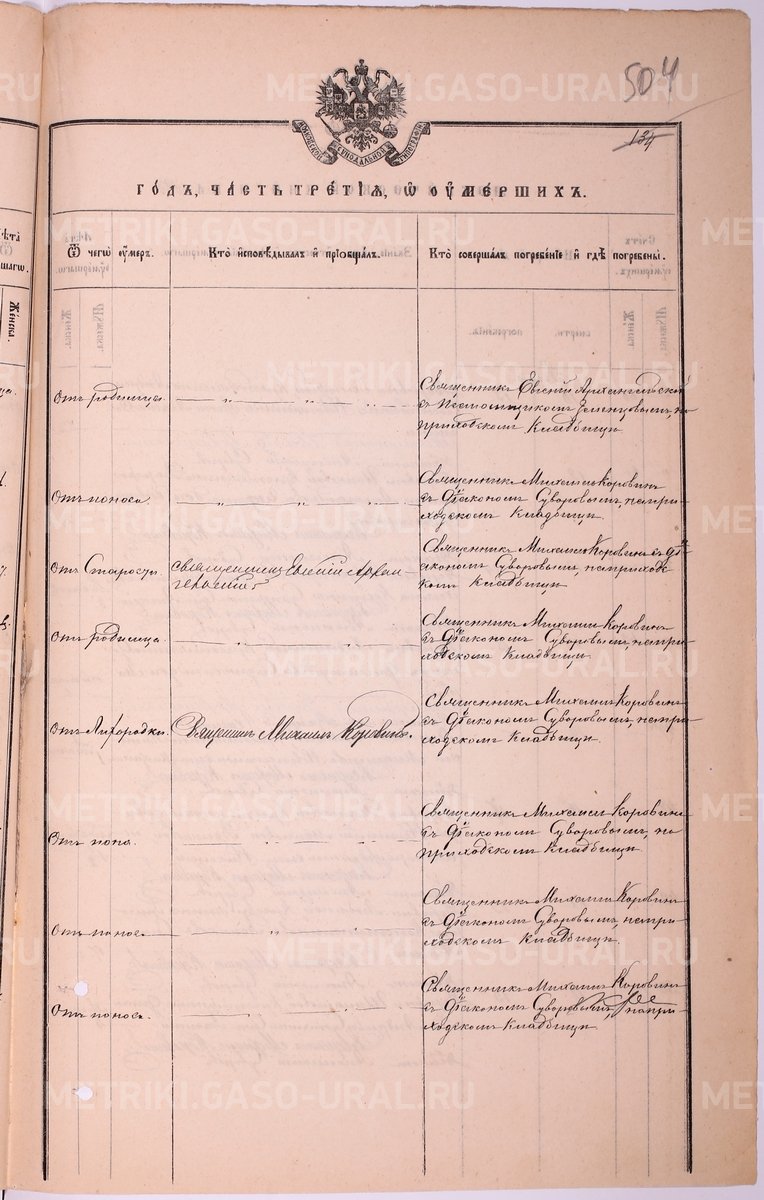 METRIKI.GASO-URAL.RU
504
134
МОСКОВСКОЙ СѴНОДАЛЬНОЙ ТИПОГРАФІИ
ГОДЪ, ЧАСТЬ ТРЕТІЯ, Ѿ ОУМЕРШИХЪ.
Ѿ чегѡ ᲂумеръ.
Кто исповѣдывалъ и прїобщалъ.
Кто совершалъ погребенїе и гдѣ погребены.
Женска.
Отъ родимца.
Священникъ Евгеній Архангельскій
съ псаломщикомъ Зеленцовымъ, на
приходскомъ кладбищѣ
Отъ поноса.
Священникъ Михаилъ Коровинъ
съ Діакономъ Суворовымъ, на при-
ходскомъ кладбищѣ.
Отъ Старости.
Священникъ Евгеній Архан-
гельскій
Священникъ Михаилъ Коровинъ съ Ді-
акономъ Суворовымъ, на приходс-
комъ кладбищѣ
Отъ родимца.
Священникъ Михаилъ Коровинъ
съ Діакономъ Суворовымъ, на при-
ходскомъ кладбищѣ
Отъ Лихорадки.
Священникъ Михаилъ Коровинъ.
Священникъ Михаилъ Коровинъ
съ Діакономъ Суворовымъ, на при-
ходскомъ кладбищѣ.
Отъ
Священникъ Михаилъ Коровинъ
съ Діакономъ Суворовымъ, на
приходскомъ кладбищѣ
Отъ поноса
Священникъ Михаилъ Коровинъ
съ Діакономъ Суворовымъ, на при-
ходскомъ кладбищѣ.
Отъ поноса.
Священникъ Михаилъ Коровинъ
съ Діакономъ Суворовымъ, на при-
ходскомъ кладбищѣ.